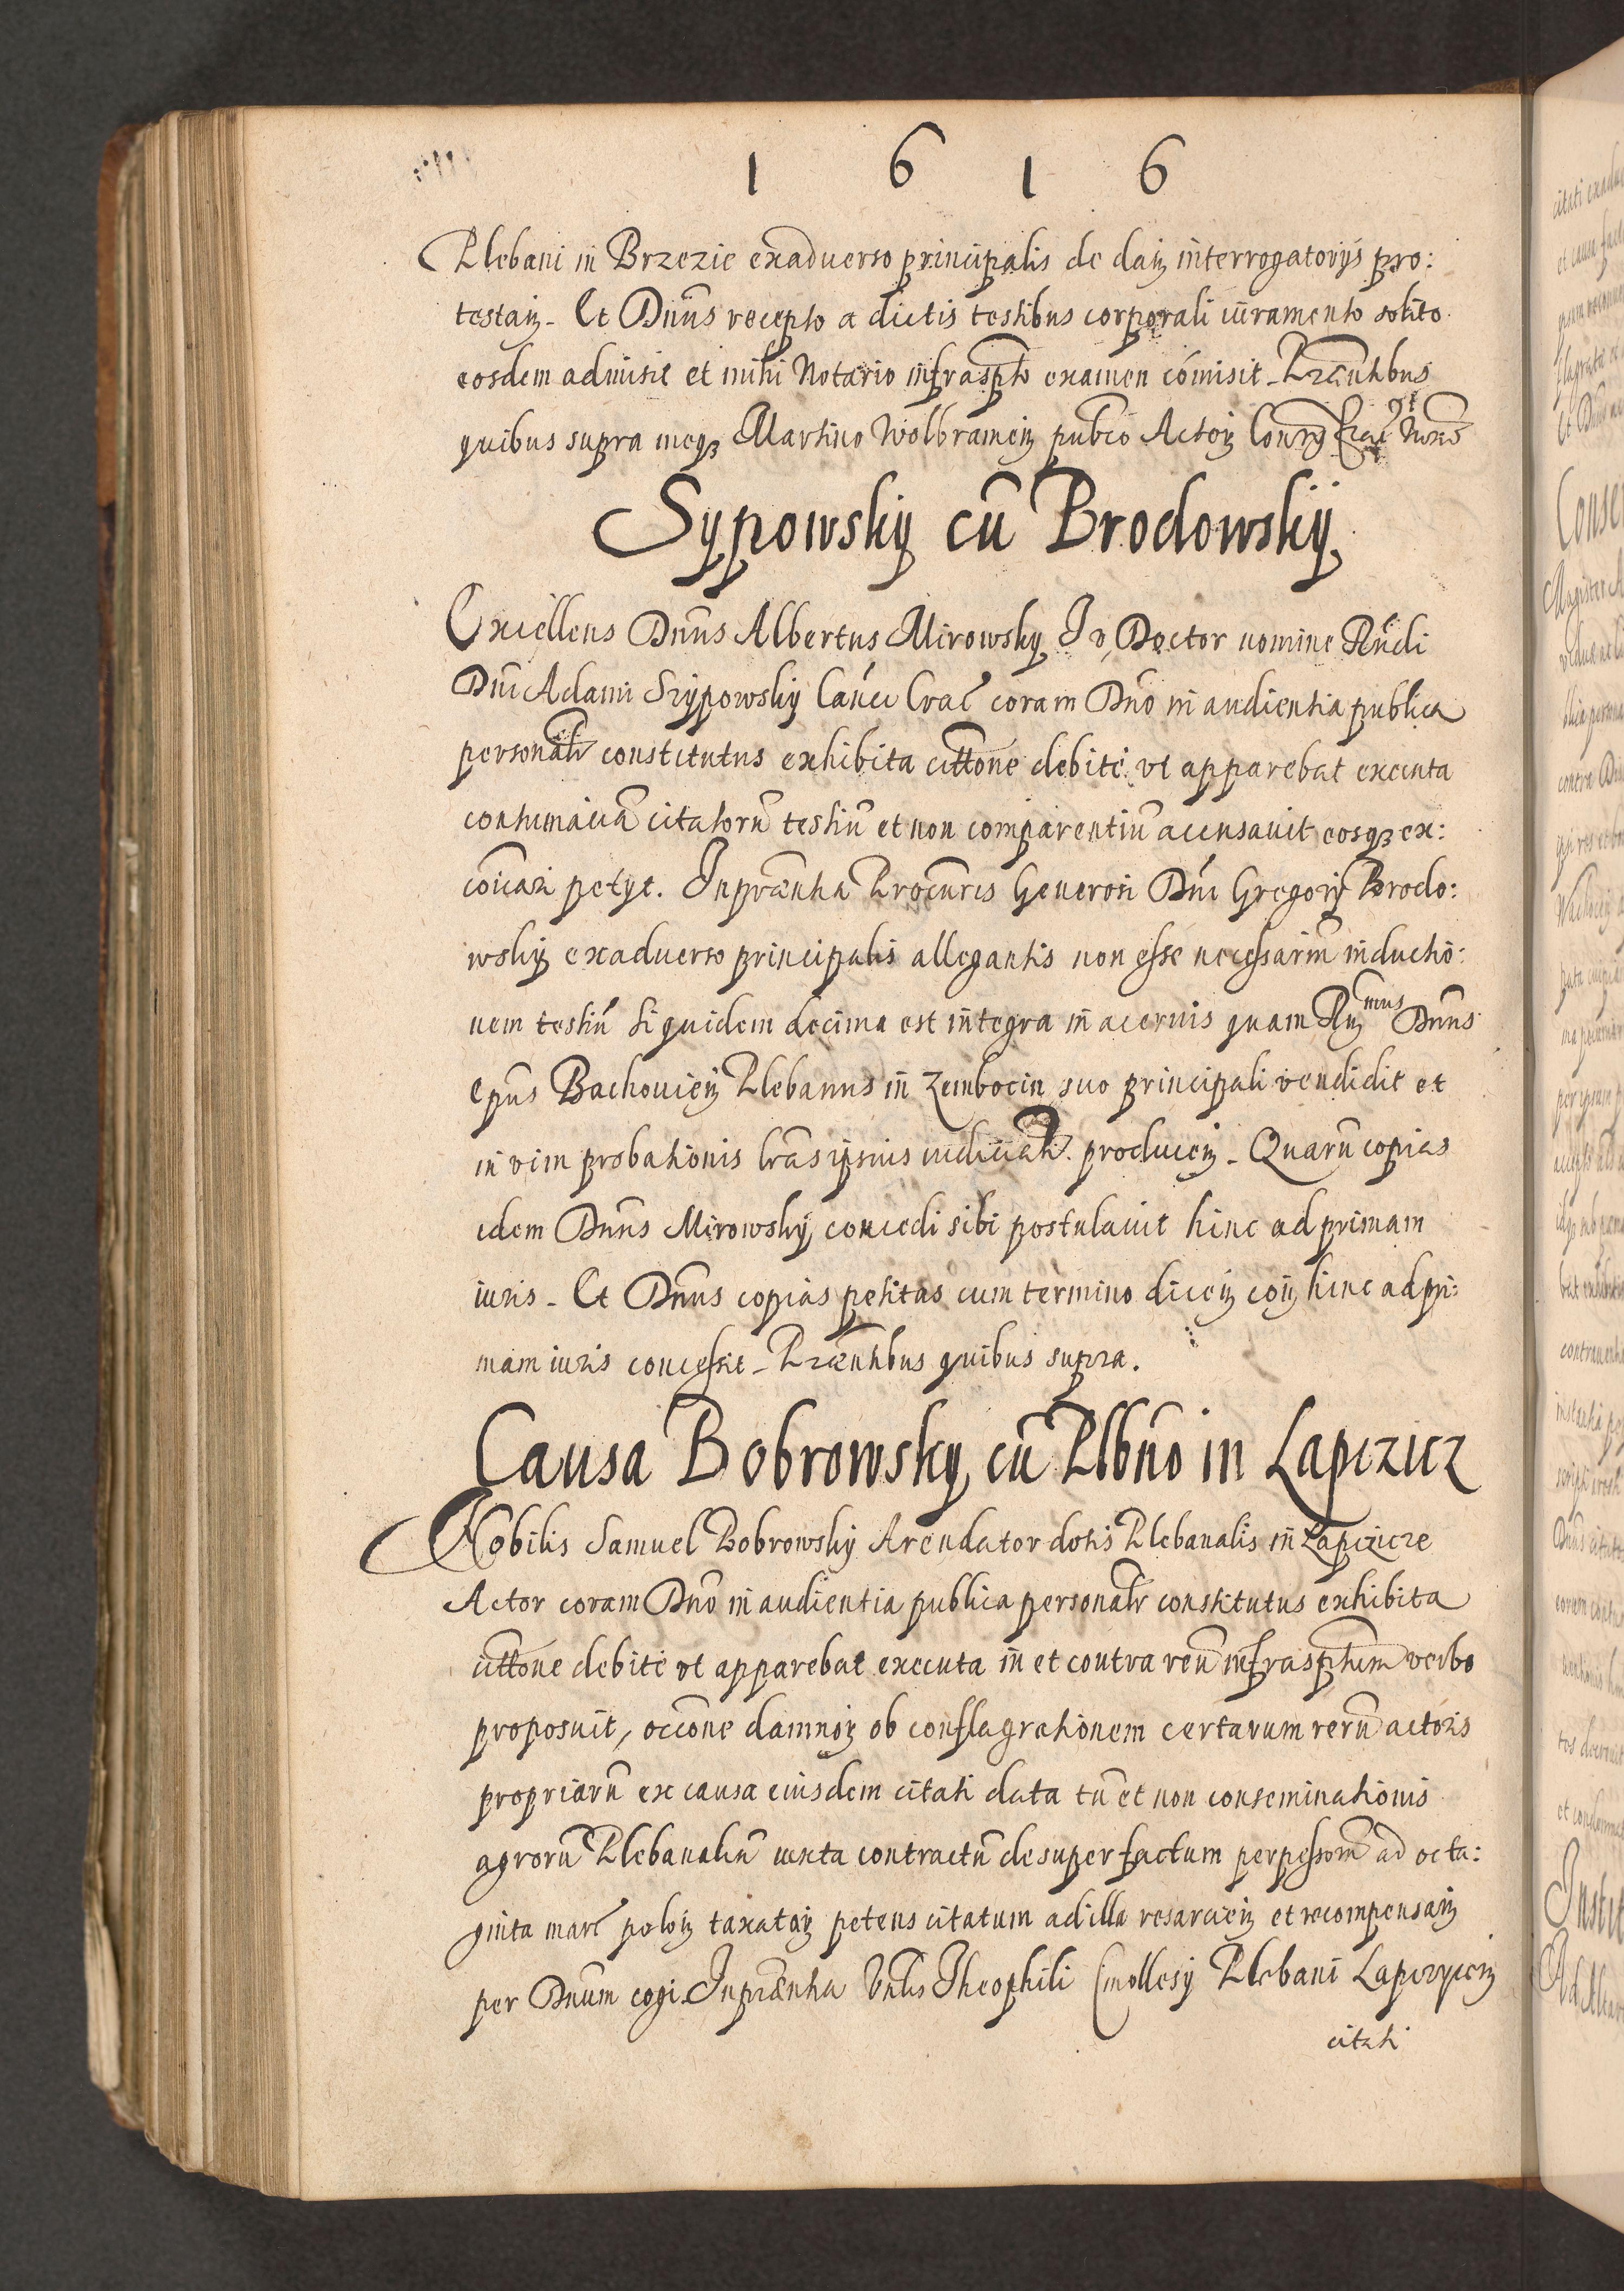 1 6 1 6
Plebani in Brzezie exaduerso principalis de daņ interrogatorijs pro:
testaņ. Et Dnus recepto a dictis testibus corporali iuramento solito
eosdem admisit et mihi Notario infrascpto examen comisit. Praentibus
quibus supra meqz Martino Wolbrameņ pubco Actoꝝ
Sypowsky cu Brodowskÿ
Excellens Dnus Albertus Mirowsky I v Doctor nomine Rndi
Dni Adami Szypowsky Canci Crac coram Dno in audientia publica
personalr constitutus exhibita cittone debite vt apparebat executa
contumacia citatoru testiu et non comparentiu accusauit eosqz ex:
coicari petyt. Inpraentia Procuris Generosi Dni Gregorij Brodo:
wsky exaduerso principalis allegantis non esse necessariu inductio:
nem testiu siquidem decima est integra in aceruis quam Rmus Dnus
Epus Bachouieņ Plebanus in Zembocin suo principali vendidit et
in vim probationis lras ipsius iudicialr produceņ. Quaru copias
idem Dnus Mirowsky concedi sibi postulauit hinc ad primam
iuris. Et Dnus copias petitas cum termino diceņ coņ hinc ad pri:
mam iuris concessit. Praentibus quibus supra.
Causa Bobrowsky cu Plbno in Lapczicz
Nobilis Samuel Bobrowsky Arendator dotis Plebanalis in Lapczicze
Actor coram Dno in audientia publica personalr constitutus exhibita
cittone debite vt apparebat executa in et contra reu infrascptum verbo
proposuit, occone damnoꝝ ob conflagrationem certarum reru actoris
propriaru ex causa eiusdem citati data tu et non conseminationis
agroru Plebanaliu iuxta contractu desuper factum perpessom ad octa:
ginta marc poloņ taxatoꝝ petens citatum ad illa resarcieņ et recompensaņ
per Dnum cogi. Inpraentia Vnlis Theophili Plebani Lapczycieņ
citati